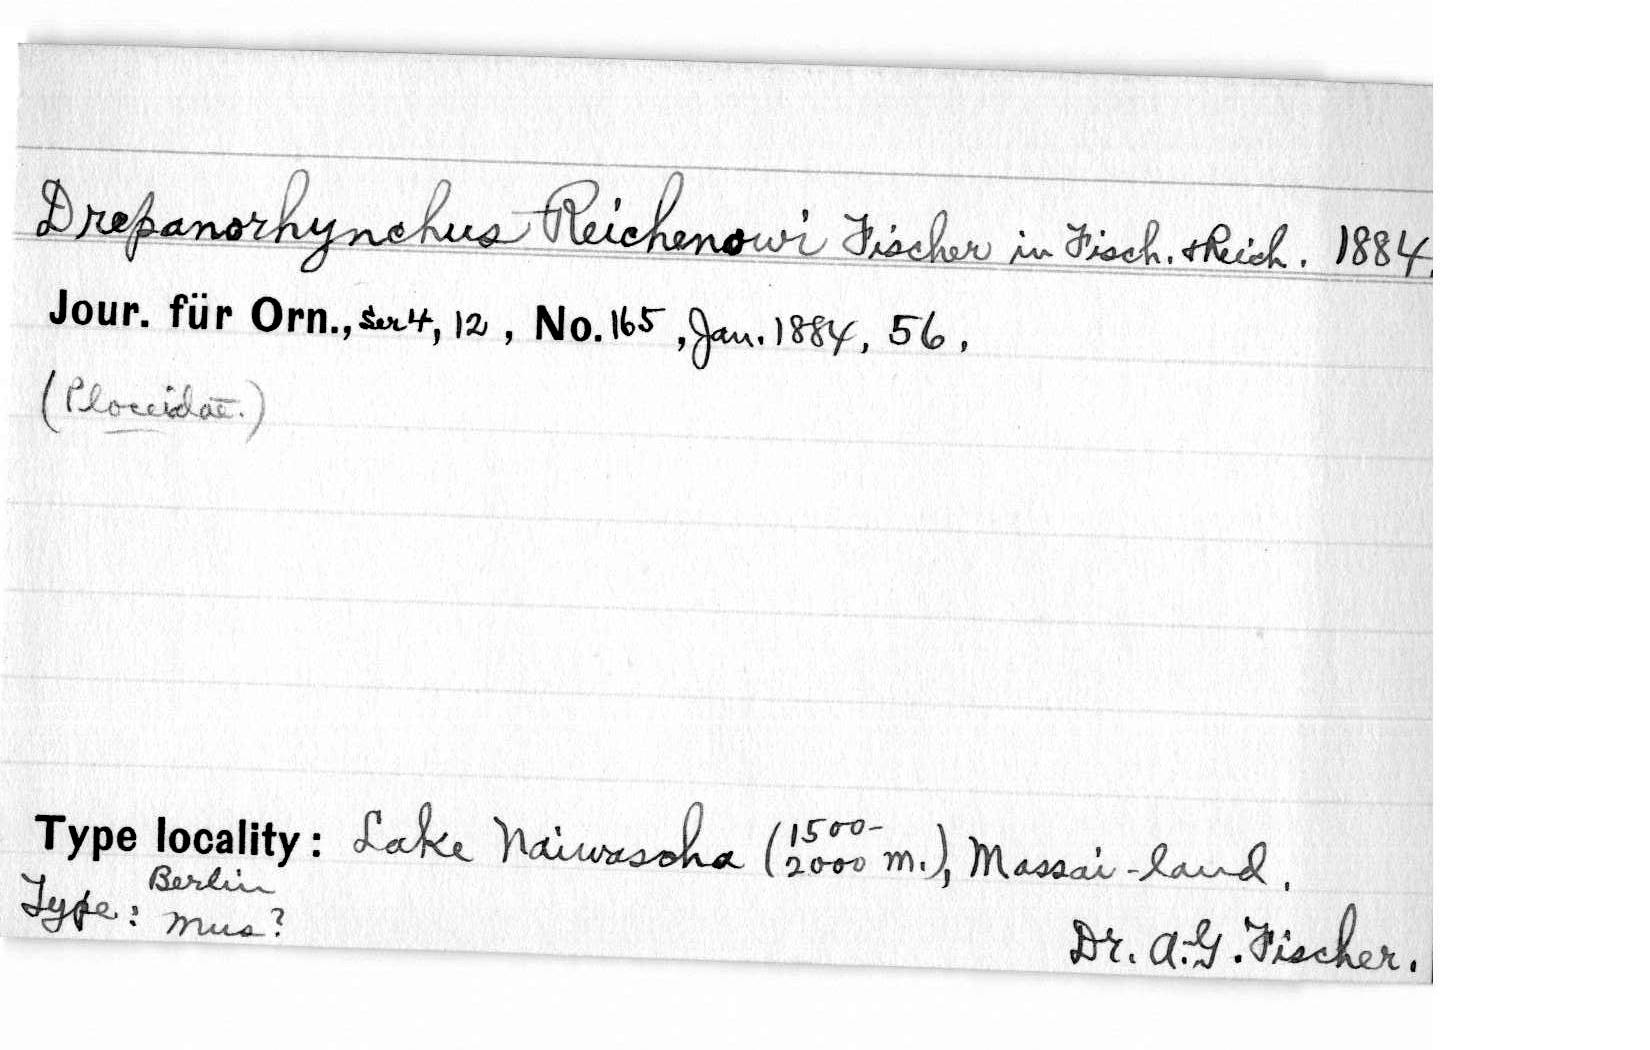 Drepanorhynchus Reichenowi Fischer in Fisch. & Reich. 1884.
Jour. für Orn., Ser 4, 12, No. 165, Jan. 1884, 56,
(Ploceidae.)
Type locality: Lake Naiwascha (1500-2000 m.), Massai-land.
Type: Berlin Mus?
Dr. A. G. Fischer.